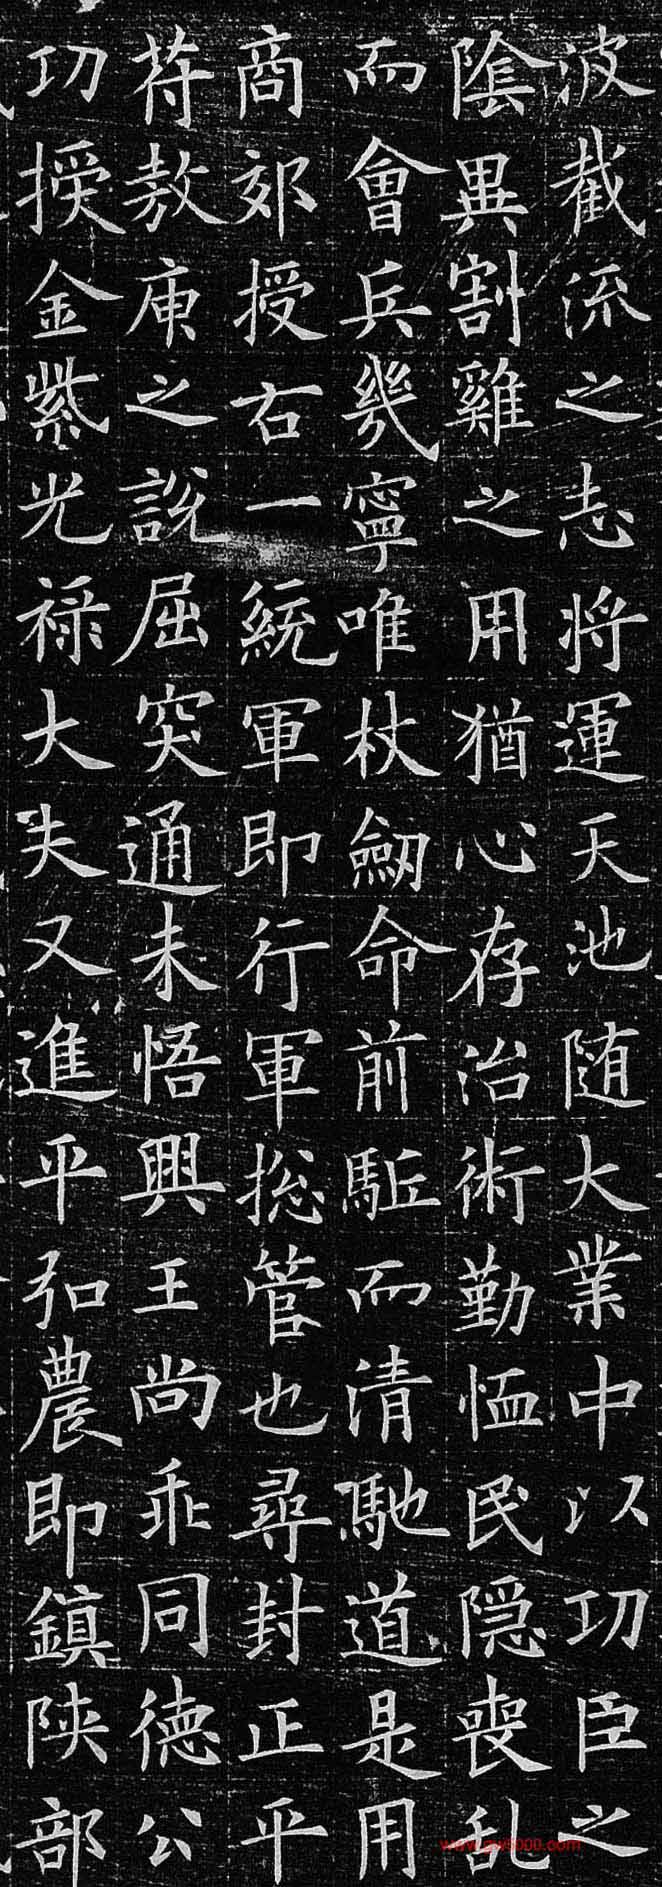 波截流之志将運天池随大業中以功臣之
陰異割雞之用猶心存治術勤恤民隐喪乱
而會兵幾寧唯杖劒命前駈而清馳道是用
商郊授右一統軍即行軍捴管也尋封正平
苻敖庾之說屈突通未悟興王尚乖同德公
功授金紫光禄大夫又進平弘農即鎮陝部
www.gw6000.com